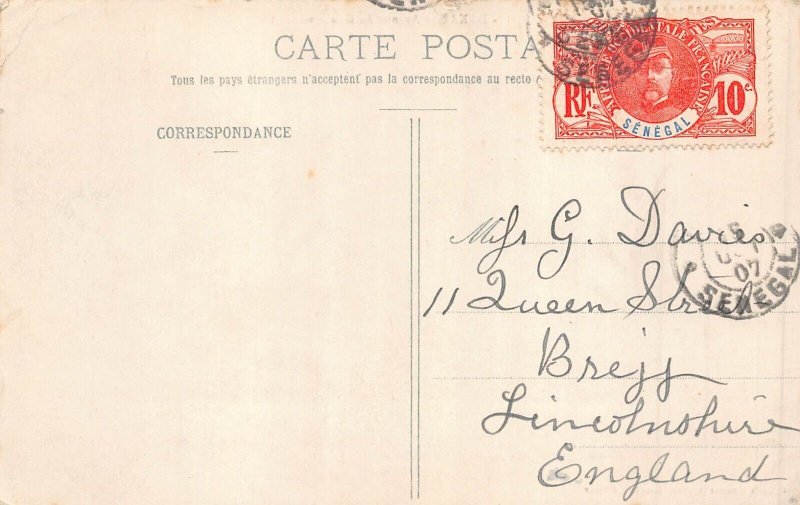 CARTE POSTA
Tous les pays étrangers n'acceptent pas la correspondance au recto
CORRESPONDANCE
AFRIQUE OCCIDENTALE FRANÇAISE
RF
10 c
SÉNÉGAL
Miss G. Davies
11 Queen Street
Brigg
Lincolnshire
England
07
SENEGAL